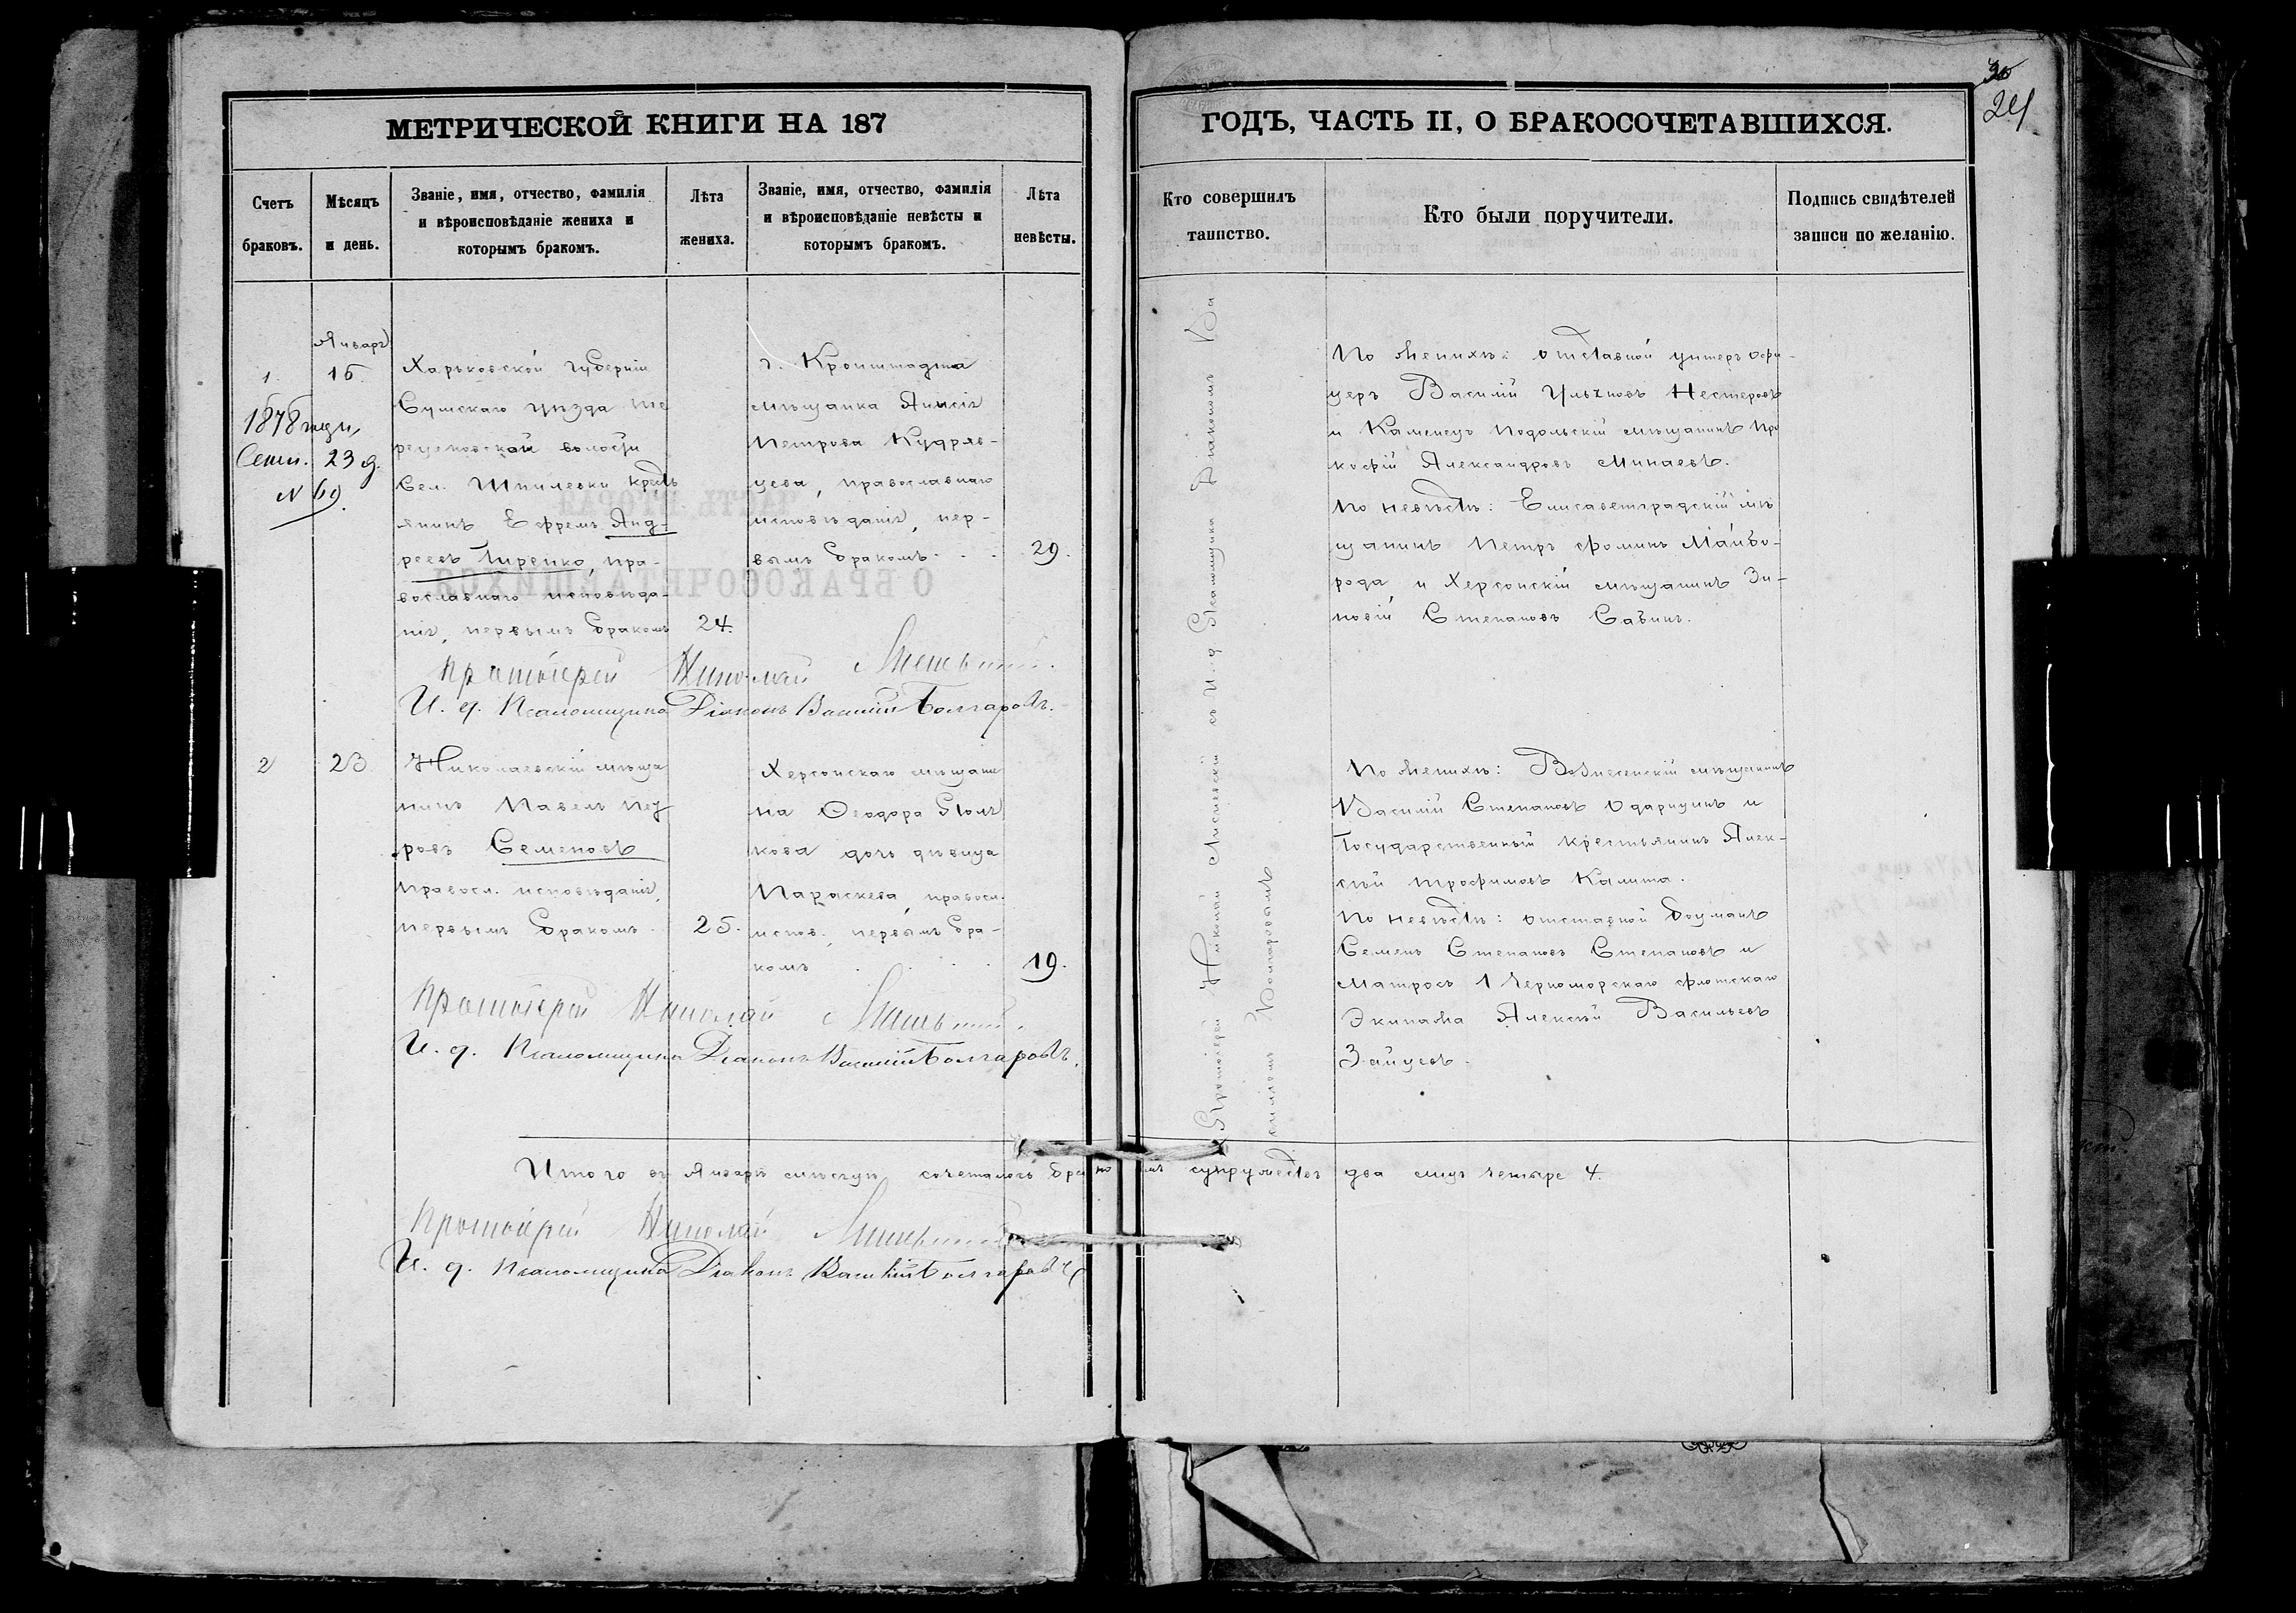 МЕТРИЧЕСКОЙ КНИГИ НА 187
Счетъ браковъ.
Мѣсяцъ и день.
Званіе, имя, отчество, фамилія
и вѣроисповѣданіе жениха и
которымъ бракомъ.
Лѣта жениха.
Званіе, имя, отчество, фамилія
и вѣроисповѣданіе невѣсты и
которымъ бракомъ.
Лѣта невѣсты.
Январь
1.
15
1878 года,
Сент. 23 д.
№ 69.
Харьковской губерніи
Сумскаго уѣзда
волости
Сел. Шпилевки крестъ
янинъ Ефремъ Анд-
реевъ Гиренко, пра-
вославнаго исповѣда-
нія, первымъ бракомъ
24.
г. Кронштадта
мѣщанка Анисія
Петрова Кудряв-
цева, православнаго
исповѣданія, пер-
вымъ бракомъ . .
29.
Протоіерей Николай
И. д. Псаломщика Діаконъ Василій Болгаровъ.
2
23
Николаевскій мѣща
нинъ Павелъ Пет
ровъ Семеновъ
правосл. исповѣданія,
первымъ бракомъ.
25.
Херсонскаго мѣщани
на Ѳеодора Поля
кова дочь дѣвица
Параскева, правосл.
испов., первымъ бра-
комъ . . . .
19.
Протоіерей Николай
И. д. Псаломщика Діаконъ Василій Болгаровъ.
Итого въ Январѣ мѣсяцѣ сочеталось бра
Протоіерей Николай
И. д. Псаломщика Діаконъ Василій Болгаровъ
30
24
ГОДЪ, ЧАСТЬ II, О БРАКОСОЧЕТАВШИХСЯ.
Кто совершилъ
таинство.
Кто были поручители.
Подпись свидѣтелей
записи по желанію.
Протоіерей Николай съ И. д. Псаломщика Діакономъ Ва
силіемъ Болгаровымъ
По женихѣ: отставной унтеръ офи-
церъ Василій Ульяновъ Нестеровъ
и Каменецъ Подольскій мѣщанинъ Про
кофій Александровъ Минаевъ.
По невѣстѣ: Елисаветградскій мѣ
щанинъ Петръ Фоминъ Майбо-
рода, и Херсонскій мѣщанинъ Зи-
новій Степановъ Савинъ.
По женихѣ: Вознесенскій мѣщанинъ
Василій Степановъ Одарицинъ и
Государственный крестьянинъ Алек-
сѣй Трофимовъ Калита.
По невѣстѣ: отставной боцманъ
Семенъ Степановъ Степановъ и
Матросъ 1 Черноморскаго флотскаго
Экипажа Алексѣй Васильевъ
Зайцевъ.
супружествъ два лицъ четыре 4.